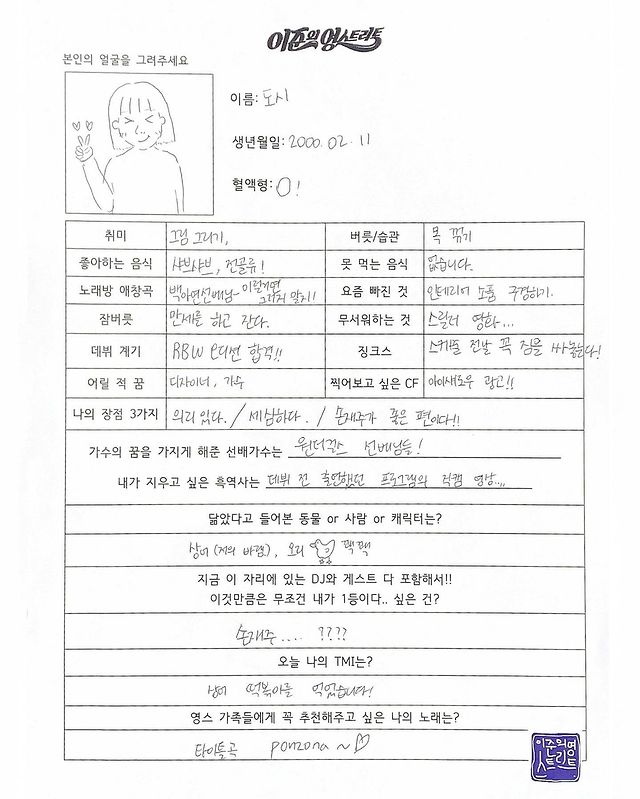 이준의 영스트리트
본인의 얼굴을 그려주세요
이름: 도시
생년월일: 2000. 02. 11
혈액형: O!
취미 그림 그리기, 버릇/습관 목 꺾기
좋아하는 음식 샤브샤브, 전골류! 못 먹는 음식 없습니다.
노래방 애창곡 백아연선배님- 이럴거면 그러지 말지! 요즘 빠진 것 인테리어 소품 구경하기.
잠버릇 만세를 하고 잔다. 무서워하는 것 스릴러 영화...
데뷔 계기 RBW 오디션 합격!! 징크스 스케줄 전날 꼭 짐을 싸놓는다!
어릴 적 꿈 디자이너, 가수 찍어보고 싶은 CF 아이섀도우 광고!!
나의 장점 3가지 의리 있다. / 세심하다. / 손재주가 좋은 편이다!!
가수의 꿈을 가지게 해준 선배가수는 원더걸스 선배님들!
내가 지우고 싶은 흑역사는 데뷔 전 출연했던 프로그램의 직캠 영상...
닮았다고 들어본 동물 or 사람 or 캐릭터는?
상어 (저의 바램), 오리 꽥꽥
지금 이 자리에 있는 DJ와 게스트 다 포함해서!!
이것만큼은 무조건 내가 1등이다.. 싶은 건?
손재주.... ????
오늘 나의 TMI는?
상어 떡볶이를 먹었습니다!
영스 가족들에게 꼭 추천해주고 싶은 나의 노래는?
타이틀곡 ponzona ~
이준의영
스트리트